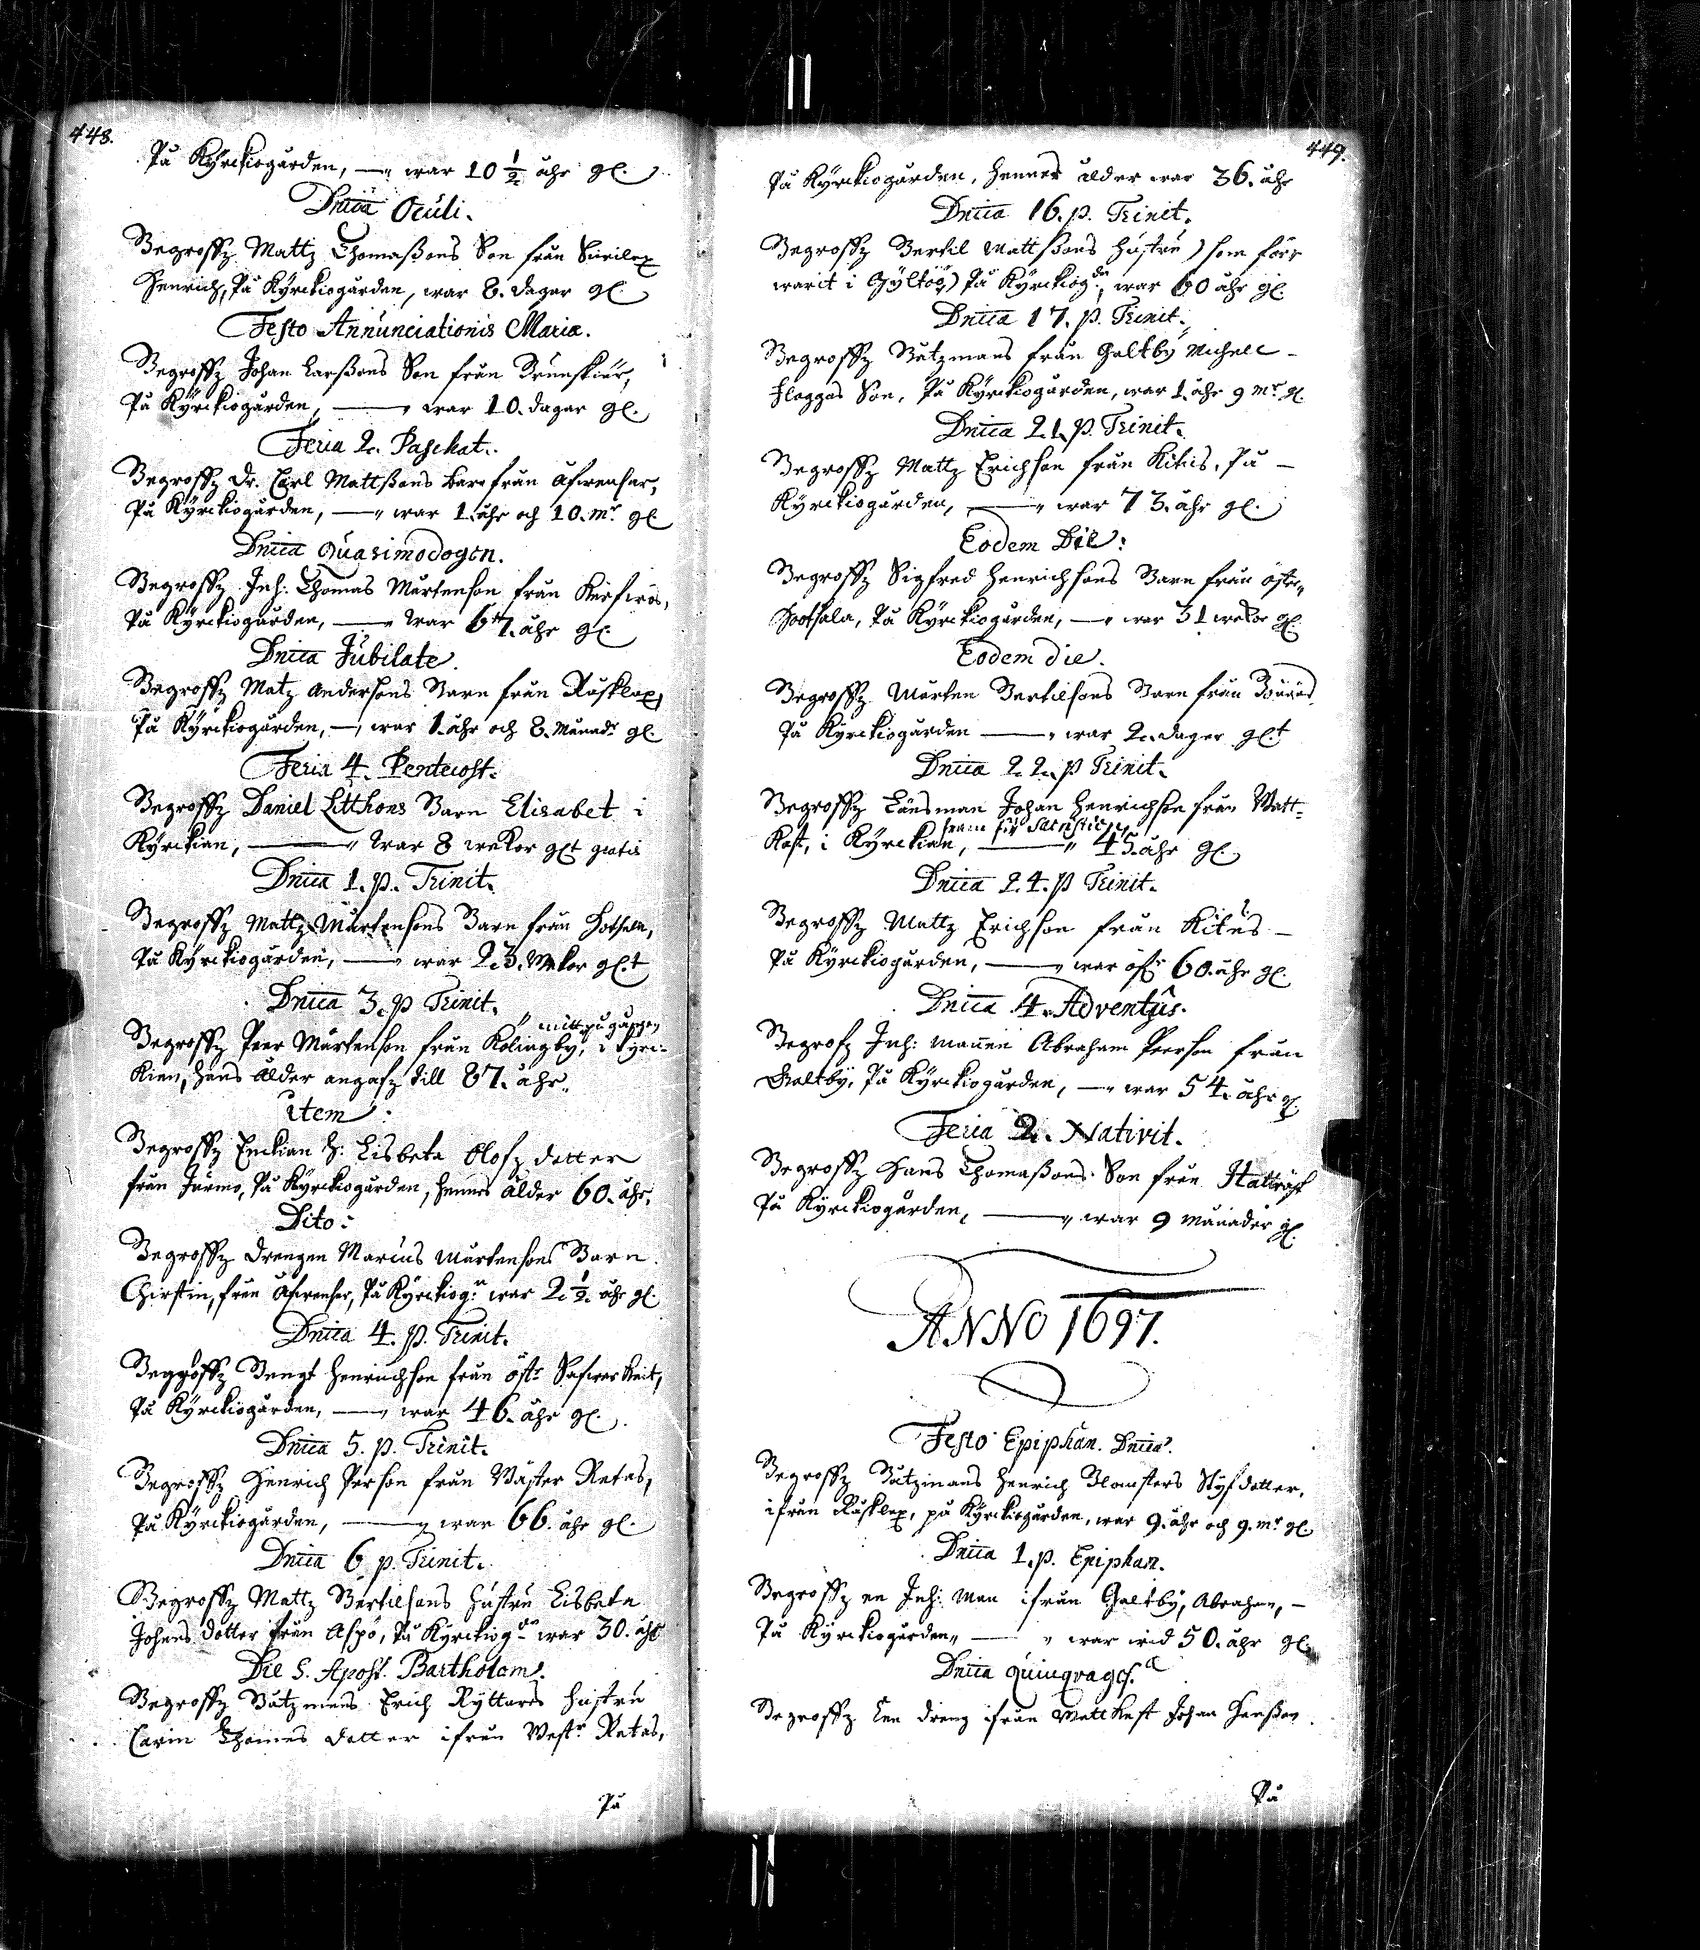 448.
På Kyrckiogården, — war 10 1/2 åhr gl.
Dnica Oculi.
Begroffz Mattz Thomaßons Son från
Henrich, På Kyrckiogården, war 8. dagar gl.
Festo Annunciationis Mariæ.
Begroffz Johan Larßons Son från Brunskiär,
På Kyrckiogården, — war 10. dagar gl.
Feria 2. Paschat.
Begroffz Dr. Carl Mattßons Barn från Åfwensar,
På Kyrckiogården, — war 1. åhr och 10. mr. gl.
Dnica Quasimodogen.
Begroffz Inh: Thomas Mårtenson från
På Kyrckiogården, — war 67. åhr gl.
Dnica Jubilate.
Begroffz Matz Andersons Barn från Råsklax,
På Kyrckiogården, — war 1. åhr och 8. Månadr gl.
Feria 4. Pentecost.
Begroffz Daniel Litthons Barn Elisabet i
Kyrckian, — war 8 wekor glt gratis
Dnica 1. p. Trinit.
Begroffz Mattz Mårtensons Barn från Hotsala,
På Kyrckiogården, — war 23. Wekor gl.t
Dnica 3. p Trinit.
mitt på gången
Begroffz Peer Mårtenson från Kälingby, i Kyrc-
kian, hans ålder angafz till 87. åhr.
item:
Begroffz Enckian h: Lisbeta Olofz dotter
från Jurmo, På Kyrckiogården, hennes ålder 60. åhr.
Dito:
Begroffz Drengen Marcus Mårtensons Barn
Chirstin, från Åfwensar, På Kyrckiog:n war 2 1/2. åhr gl.
Dnica 4. p. Trinit.
Begroffz Bengt Henrichson från östr Safwerkeit,
På Kyrckiogården, — war 46. åhr gl.
Dnica 5. p. Trinit.
Begroffz Henrich Person från Wäster Retas,
På Kyrckiogården, — war 66. åhr gl.
Dnica 6 p. Trinit.
Begroffz Mattz Bertilsons hustru Lisbeta
Johans dotter från Aspö, På Kyrckiogdn war 30. åhr
Die S. Apost. Bartholom.
Begroffz Båtzmans Erich Ryttares hustru
Carin Thomas dotter ifrån Westr Retas,
På
449.
På Kyrckiogården, hennes ålder war 36. åhr
Dnica 16. p. Trinit.
Begroffz Bertil Mattßons hustru (som förr
warit i Gyltöö) På Kyrckiogdn, war 60 åhr gl.
Dnica 17. p. Trinit.
Begroffz Båtzmans från Galtby Michell
Flaggas Son, På Kyrckiogården, war 1. åhr 9 mr. gl.
Dnica 21. p. Trinit.
Begroffz Mattz Erichson från Kitus, På —
Kyrckiogården, — war 73. åhr gl.
Eodem Die:
Begroffz Sigfred Henrichsons Barn från öster
Hootsala, På Kyrckiogården, — war 31 wekor gl.
Eodem die.
Begroffz Mårten Bertilsons Barn från
På Kyrckiogården — war 2. dagar gl.t
Dnica 22. p Trinit.
Begroffz Länsman Johan Henrichson från Watt-
fram för Sacristie
kast, i Kyrckian, — 45. åhr gl.
Dnica 24. p Trinit.
Begroffz Mattz Erichson från Kitus —
På Kyrckiogården, — war öfr 60. åhr gl.
Dnica 4. Adventûs.
Begrofz Inh: mannen Abraham Peerson från
Galtby, På Kyrckiogården, — war 54. åhr gl.
Feria 2. Nativit.
Begroffz Hans Thomaßons Son från
På Kyrckiogården, — war 9 månader gl.
ANNO 1697.
Festo Epiphan. Dnica.
Begroffz Båtzmans Henrich Blomsters Styfdotter,
ifrån Råsklax, på Kyrckiogården, war 9. åhr och 9. mr gl.
Dnica 1. p. Epiphan.
Begroffz en Inh: Man ifrån Galtby, Abraham, —
På Kyrckiogården, — war wid 50. åhr gl.
Dnica Quinqvages.a
Begroffz Een dreng ifrån Wattkast Johan Hanßon
På